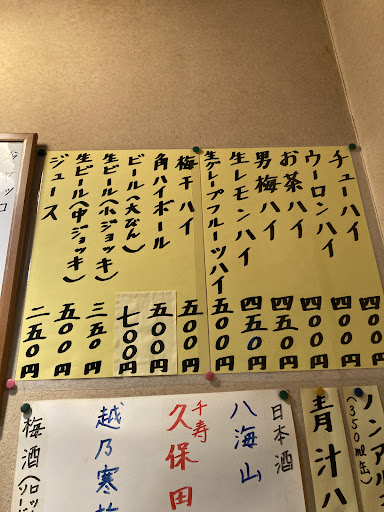 チューハイ 四〇〇円
ウーロンハイ 四〇〇円
お茶ハイ 四〇〇円
男梅ハイ 四五〇円
生レモンハイ 四五〇円
生グレープフルーツハイ 五〇〇円
梅干ハイ 五〇〇円
角ハイボール 五〇〇円
ビール(大びん) 七〇〇円
生ビール(小ジョッキ) 三五〇円
生ビール(中ジョッキ) 五〇〇円
ジュース 二五〇円
ノンアル
(350ml缶)
青汁ハ
日本酒
八海山
千寿
久保田
越乃寒
梅酒(ロッ